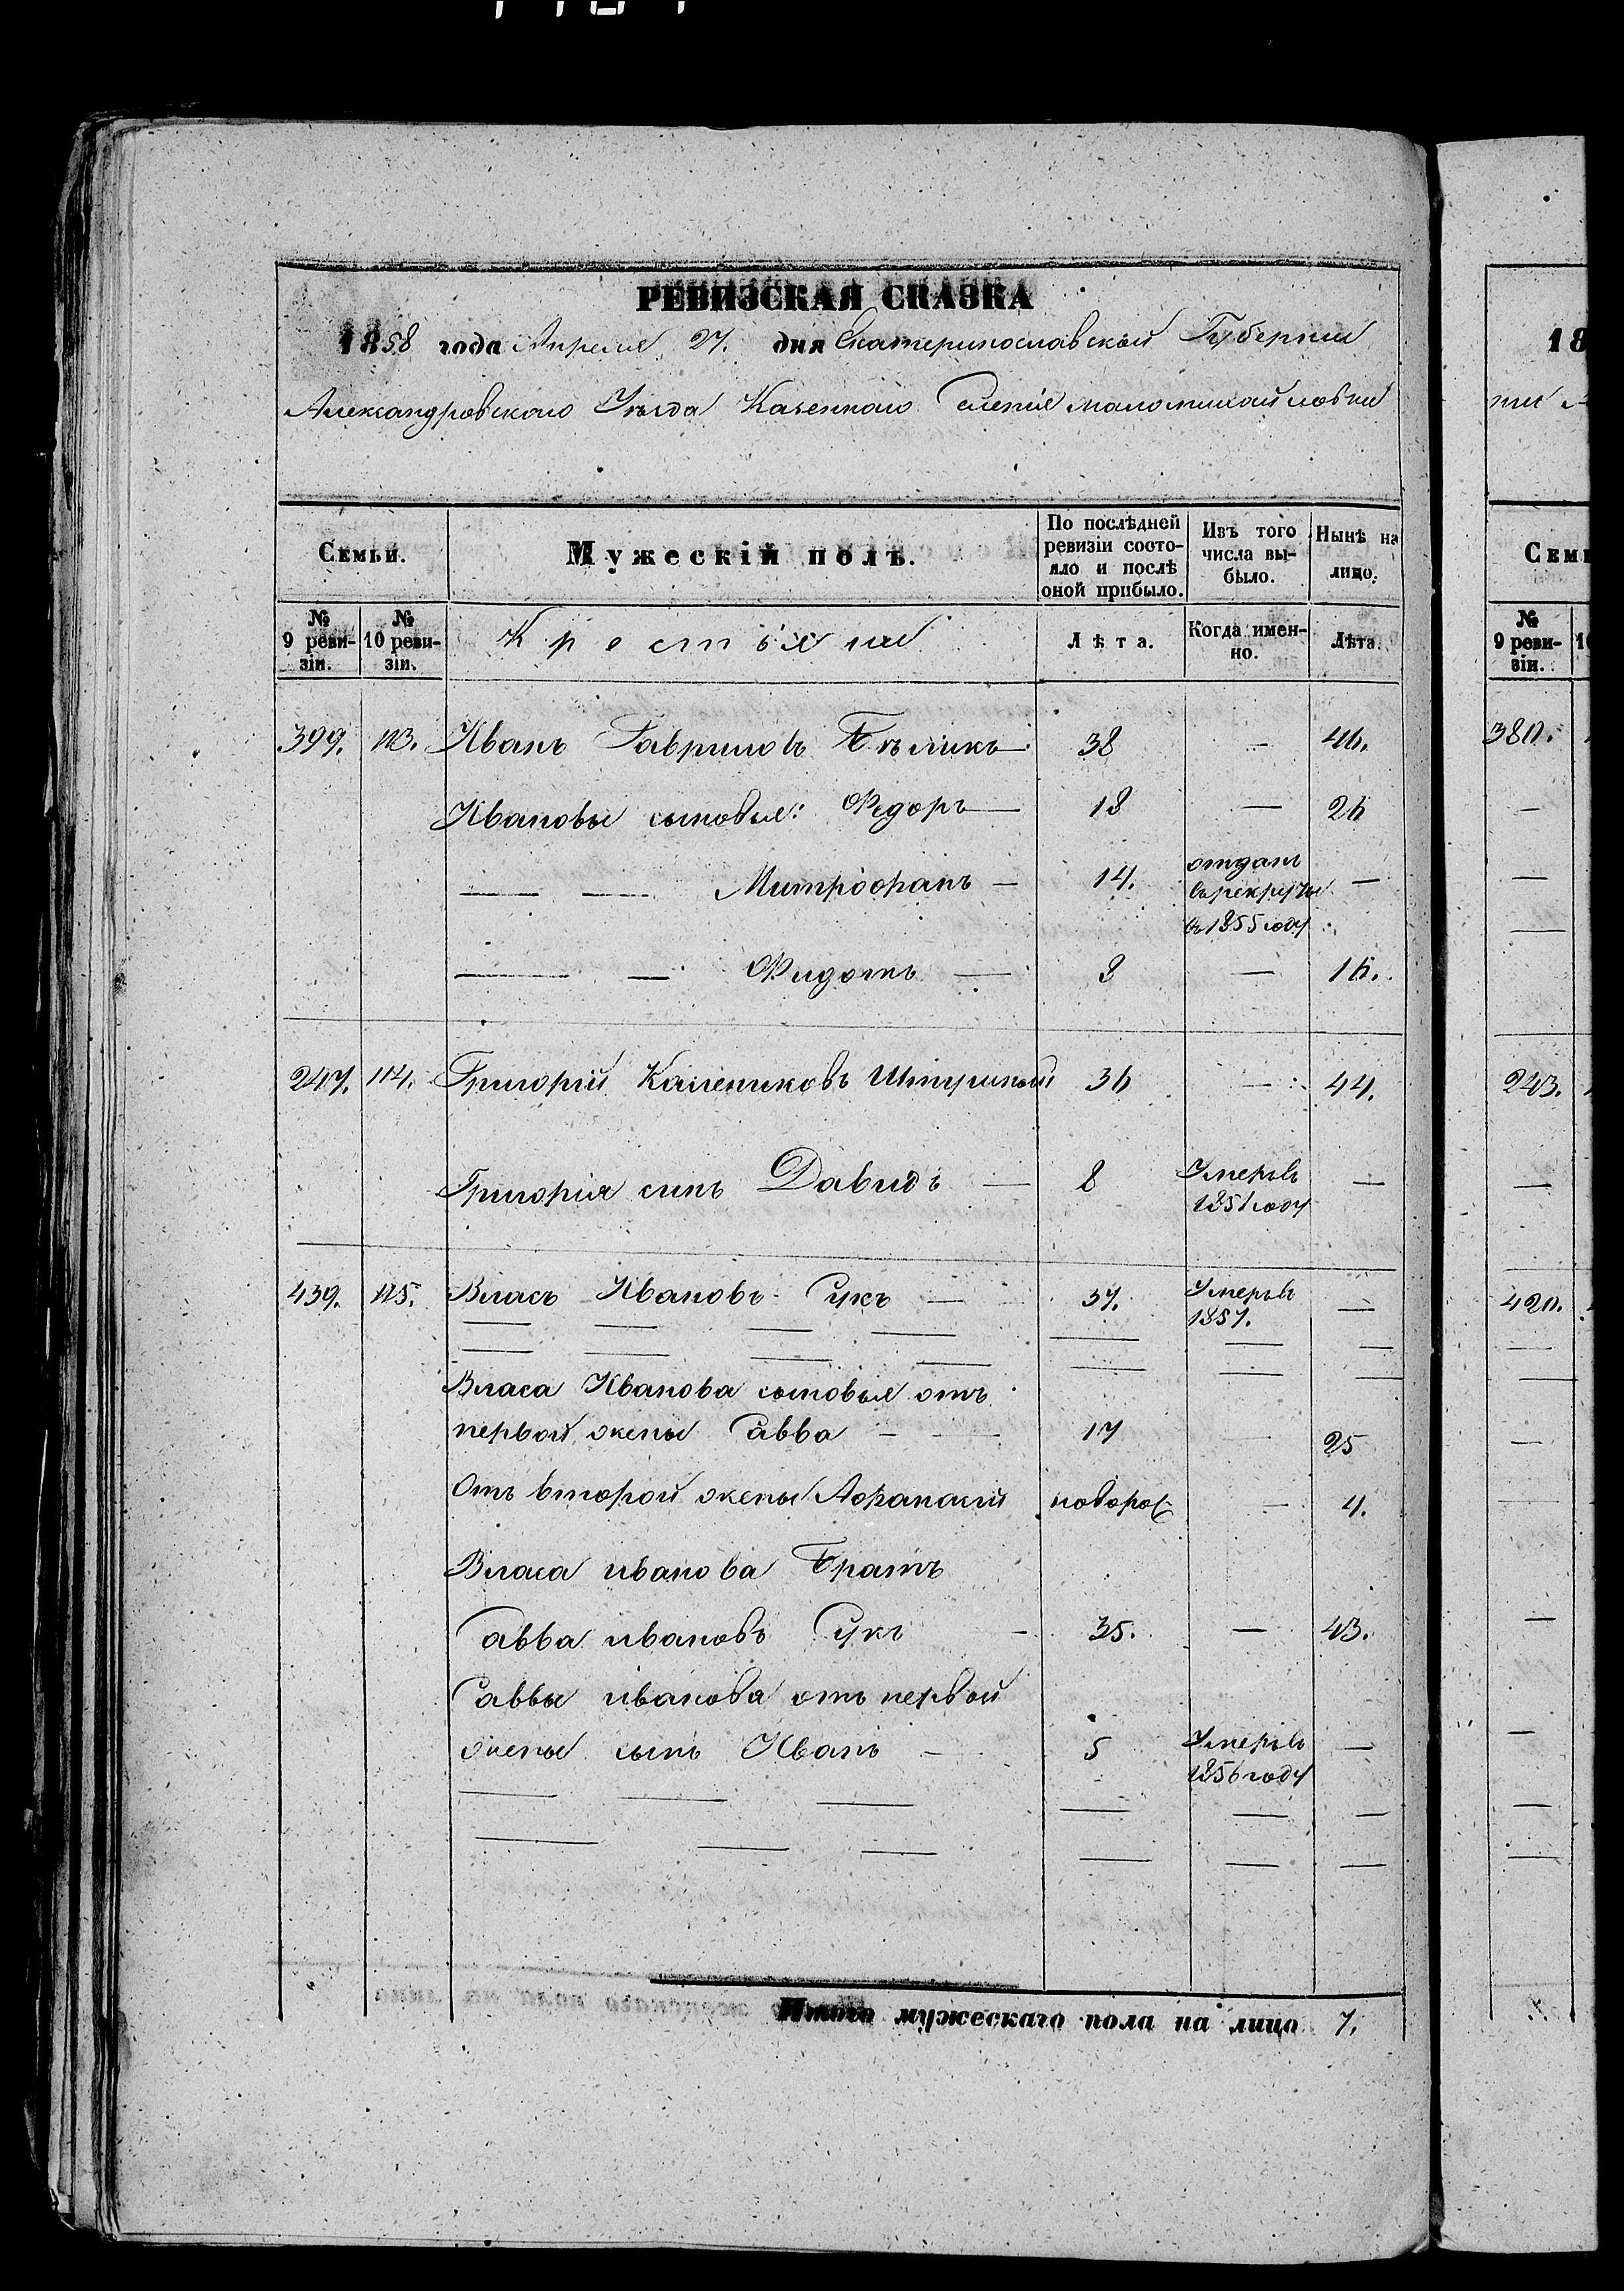 РЕВИЗСКАЯ СКАЗКА
1858 года Апреля 27. дня Екатеринославской Губернии
Александровского Уезда Казенного Селенія маломихайловки
Семьи.
Мужескій полъ.
По послѣдней ревизіи состо-
яло и послѣ
оной прибыло.
Изъ того
числа вы-
было.
Нынѣ на
лицо.
№ 9 реви-
зіи.
№ 10 реви-
зіи.
Крестьяне
Лѣта.
Когда имен-
но.
Лѣта.
399. 113. Иванъ Гавриловъ Бѣликъ — 38 — 46.
Ивановы сыновья: Федоръ — 18 — 26
— — Митрофанъ — 14. отданъ
въ рекруты
въ 1855 году —
— — Федотъ — 8 — 16.
247. 114. Григорій Калениковъ 36 — 44.
Григорія сынъ Давидъ — 8 Умеръ въ
1851 году —
439. 115. Власъ Ивановъ Сукъ — 37. Умеръ въ
1857. —
Власа Иванова сыновья отъ
первой жены Савва — 17 — 25
Отъ второй жены Афанасій новорож — 4.
Власа иванова Братъ
Савва ивановъ Сукъ — 35. — 43.
Саввы иванова отъ первой
жены сынъ Иванъ — 5 Умеръ въ
1856 году —
Итого мужескаго пола на лицо 7.
18
Семь
№ 9 реви-
зіи.
380.
243.
420.